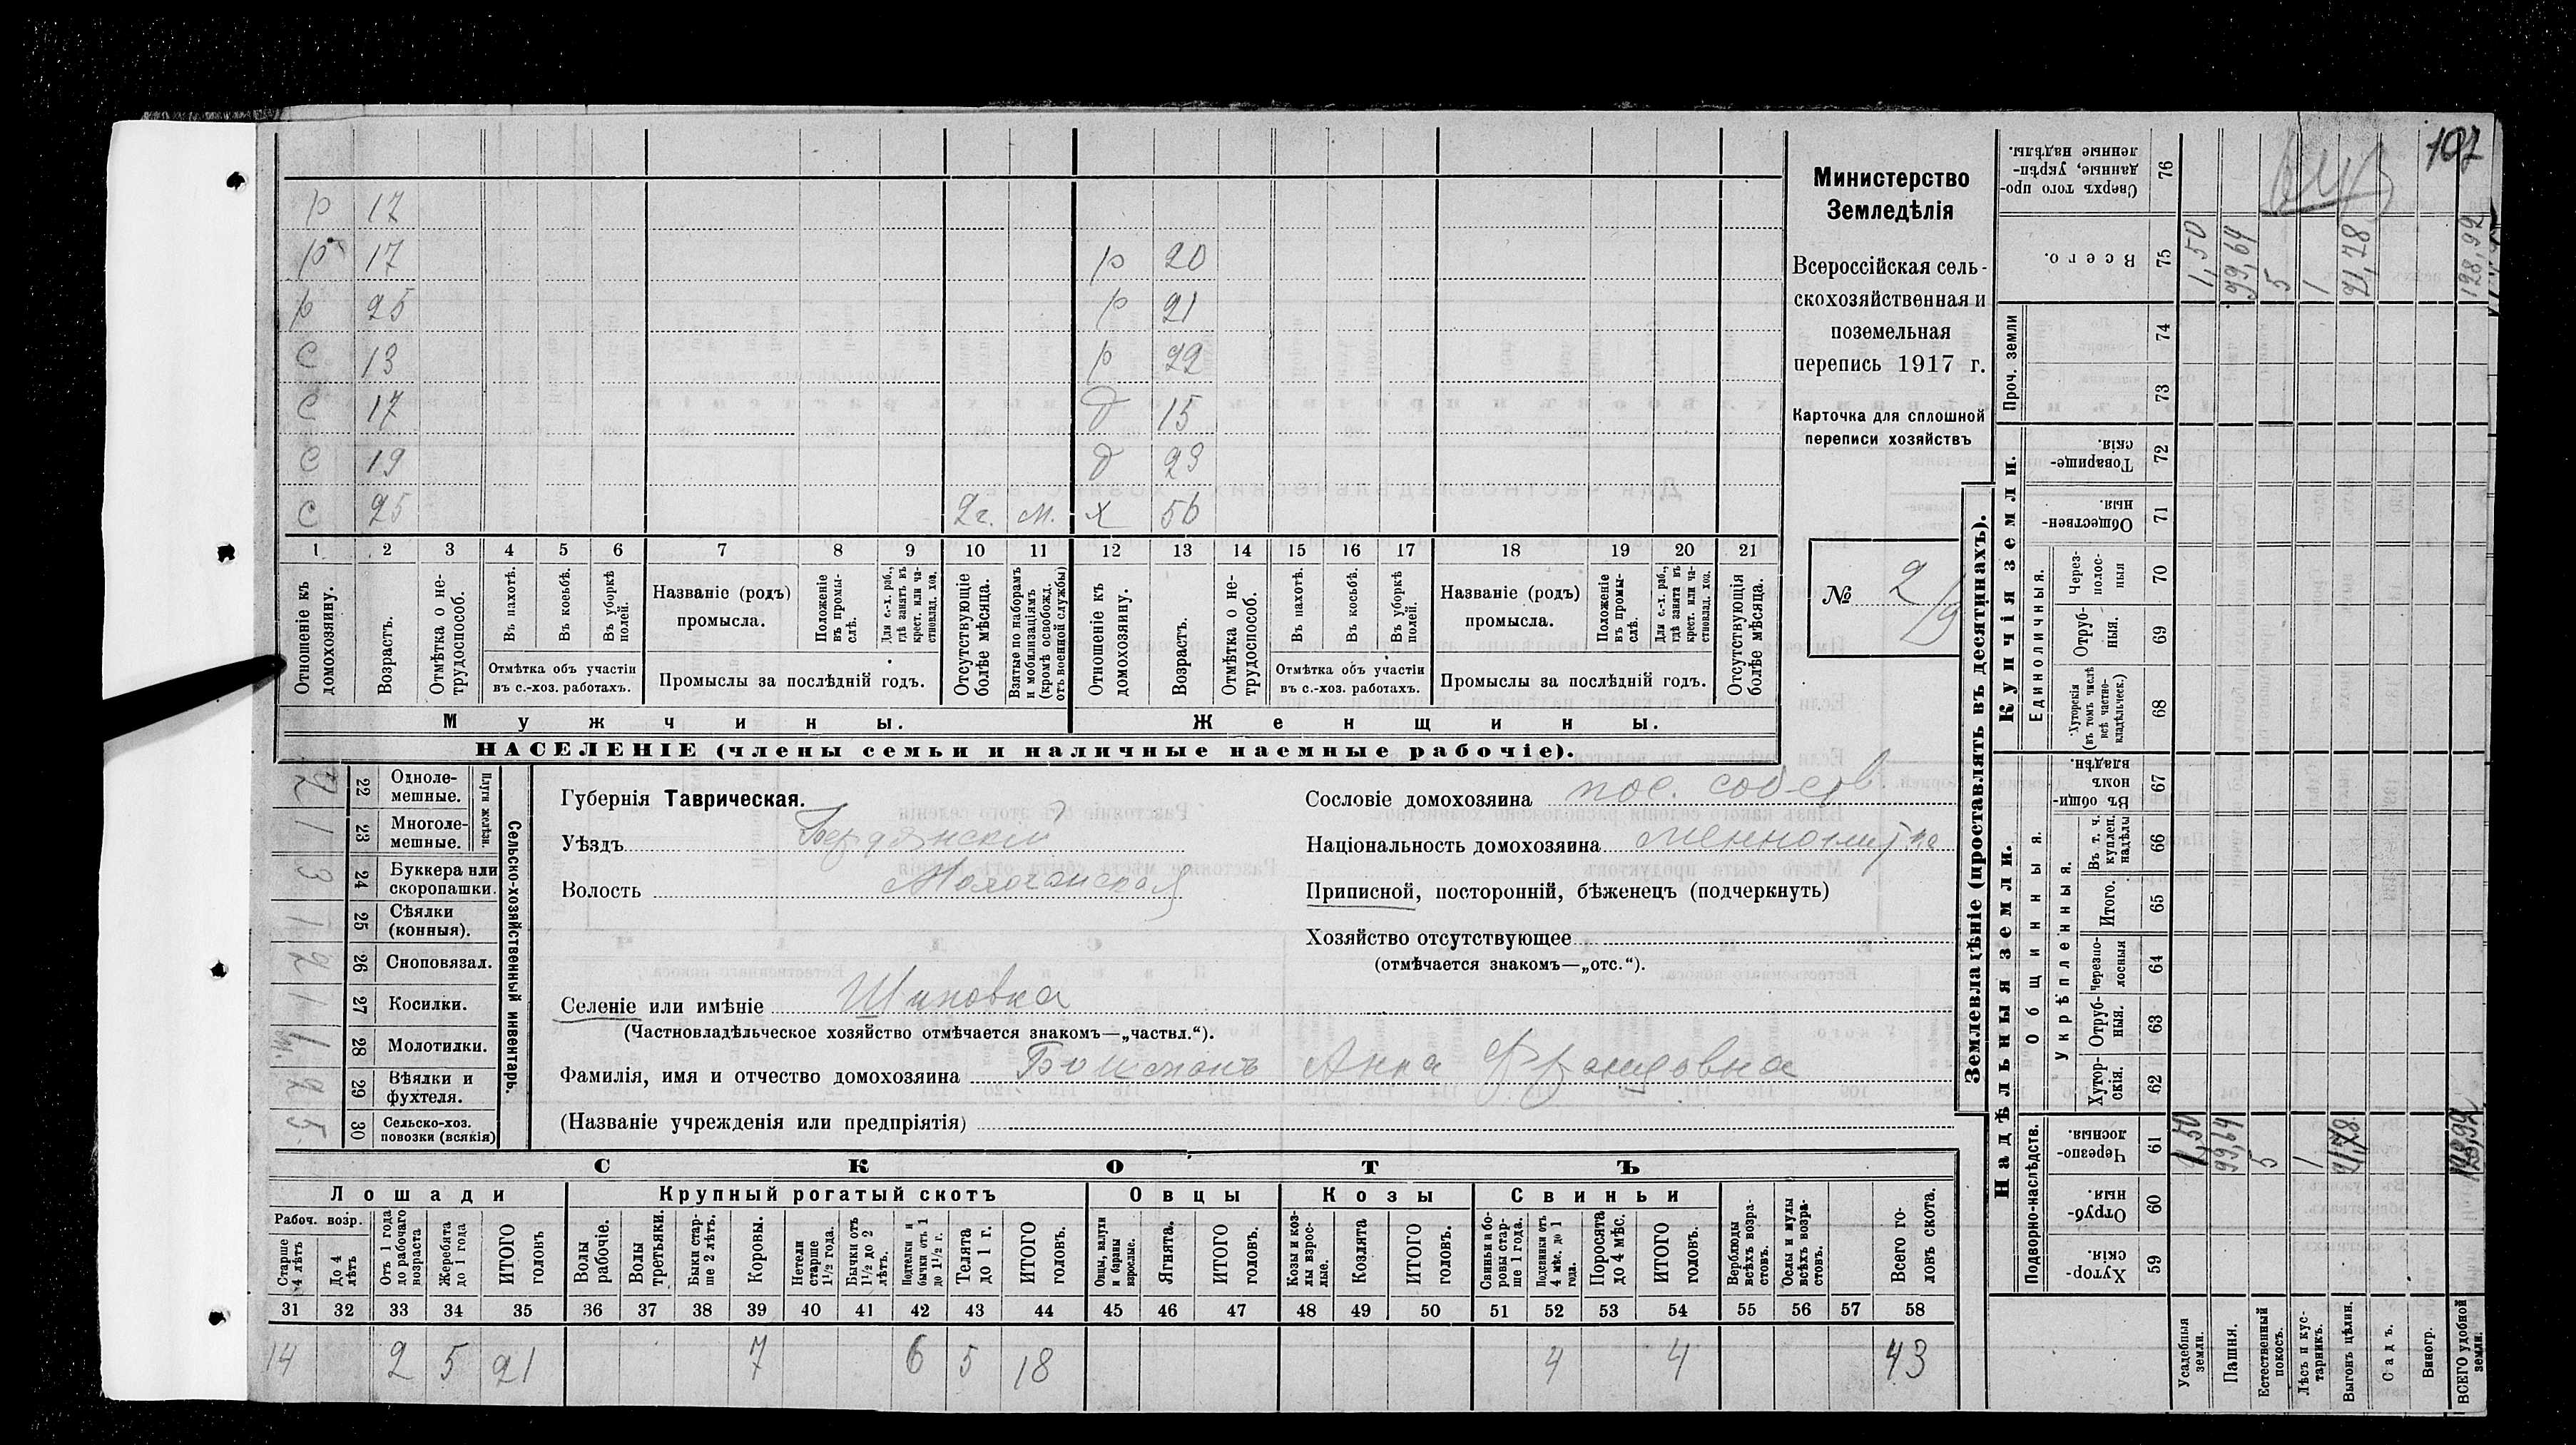 107
Министерство
Земледѣлія
Всероссійская сель-
скохозяйственная и
поземельная
перепись 1917 г.
Карточка для сплошной
переписи хозяйствъ
№ 2/9
р 17
р 17 р 20
р 25 р 21
с 13 р 22
с 17 д 15
с 19 д 23
с 25 2 г. м. х 56
1 2 3 4 5 6 7 8 9 10 11 12 13 14 15 16 17 18 19 20 21
Отношеніе къ домохозяину.
Возрастъ.
Отмѣтка о не-трудоспособ.
Въ пахотѣ.
Въ косьбѣ.
Въ уборкѣ полей.
Отмѣтка объ участіи
въ с.-хоз. работахъ.
Названіе (родъ)
промысла.
Положеніе въ промы-слѣ.
Для с.-х. раб., гдѣ занятъ въ крест. или ча-стновлад. хоз.
Промыслы за послѣдній годъ.
Отсутствующіе болѣе мѣсяца.
Взятые по наборамъ и мобилизаціямъ (кромѣ освобожд. отъ военной службы)
Отношеніе къ домохозяину.
Возрастъ.
Отмѣтка о не-трудоспособ.
Въ пахотѣ.
Въ косьбѣ.
Въ уборкѣ полей.
Отмѣтка объ участіи
въ с.-хоз. работахъ.
Названіе (родъ)
промысла.
Положеніе въ промы-слѣ.
Для с.-х. раб., гдѣ занята въ крест. или ча-стновлад. хоз.
Промыслы за послѣдній годъ.
Отсутствующія болѣе мѣсяца.
Мужчины. Женщины.
НАСЕЛЕНІЕ (члены семьи и наличные наемные рабочіе).
Сельско-хозяйственный инвентарь.
Плуги желѣзн.
2 22 Одноле-мешные.
1 23 Многоле-мешные.
3 24 Буккера или скоропашки.
1 25 Сѣялки (конныя).
2 26 Сноповязал.
1 27 Косилки.
28 Молотилки.
2 29 Вѣялки и фухтеля.
5 30 Сельско-хоз. повозки (всякія)
Губернія Таврическая.
Уѣздъ Бердянскій
Волость Молочанская
Сословіе домохозяина пос. собств.
Національность домохозяина меннонитка
Приписной, посторонній, бѣженецъ (подчеркнуть)
Хозяйство отсутствующее
(отмѣчается знакомъ—„отс.“).
Селеніе или имѣніе Шпаковка
(Частновладѣльческое хозяйство отмѣчается знакомъ—„частвл.“).
Фамилія, имя и отчество домохозяина Бошманъ Анна Францовна
(Названіе учрежденія или предпріятія)
СКОТЪ
Лошади Крупный рогатый скотъ Овцы Козы Свиньи
Рабоч. возр.
Старше 4 лѣтъ
До 4 лѣтъ
Отъ 1 года до рабочаго возраста
Жеребята до 1 года
ИТОГО головъ
Волы рабочіе.
Волы третьяки.
Быки стар-ше 2 лѣтъ.
Коровы.
Нетели старше 1½ года.
Бычки отъ 1½ до 2 лѣтъ.
Подтелки и бычки отъ 1 до 1½ г.
Телята до 1 г.
ИТОГО головъ.
Овцы, валухи и бараны взрослые.
Ягнята.
ИТОГО головъ.
Козы и коз-лы взрос-лые.
Козлята
ИТОГО головъ.
Свиньи и бо-ровы стар-ше 1 года.
Подсвинки отъ 4 мѣс. до 1 года.
Поросята до 4 мѣс.
ИТОГО головъ.
Верблюды всѣхъ возра-стовъ.
Ослы и мулы всѣхъ возра-стовъ.
Всего го-ловъ скота.
31 32 33 34 35 36 37 38 39 40 41 42 43 44 45 46 47 48 49 50 51 52 53 54 55 56 57 58
14 2 5 21 7 6 5 18 4 4 43
Землевладѣніе (проставлять въ десятинахъ).
Надѣльныя земли.
Купчія земли.
Проч. земли
Подворно-наслѣдств.
Общинныя.
Укрѣпленныя.
Единоличныя.
Хутор-скія. 59
Отруб-ныя. 60
Черезпо-лосныя. 61
Хутор-скія. 62
Отруб-ныя. 63
черезпо-лосныя 64
Итого. 65
Въ т. ч. куплен. надѣлы 66
Въ общи-номъ владѣн. 67
Хуторскія (въ томъ числѣ всѣ частно-владѣльческ.) 68
Отруб-ныя. 69
Через-полос-ныя 70
Обществен-ныя. 71
Товарище-скія. 72
73
74
Всего. 75
Сверхъ того про-данные, укрѣп-ленные надѣлы. 76
Усадебныя земли. 1,50 1,50
Пашня. 99,64 99,64
Естественный покосъ. 5 5
Лѣсъ и кус-тарникъ. 1 1
Выгонъ цѣлин. 21,78 21,78
Садъ.
Виногр.
ВСЕГО удобной земли. 128,92 128,92